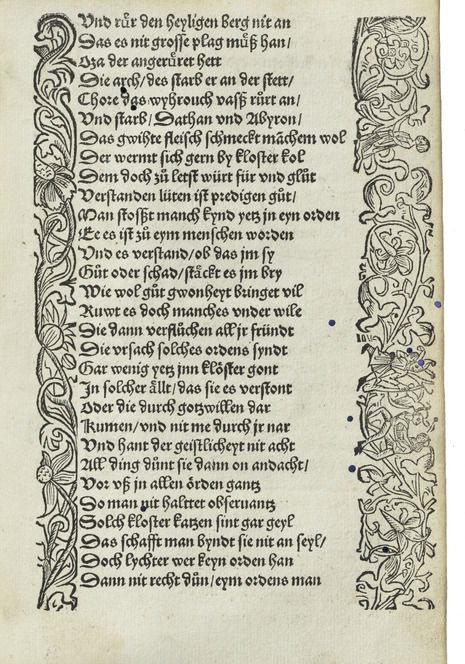 Vnd ruͤr den heyligen berg nit an
Das es nit grosse plag muͤß han/
Oza der angeruͤret hett
Die arch/des starb er an der stett/
Chore das wyhrouch vasß ruͤrt an/
Vnd starb/Dathan vnd Abyron/
Das gwihte fleisch schmeckt mãchem wol
Der wermt sich gern by kloster kol
Dem doch zuͦ letst würt für vnd gluͦt
Verstanden lüten ist predigen guͦt/
Man stosßt manch kynd yetz in eyn orden
Ee es ist zuͦ eym menschen worden
Vnd es verstand/ob das jm sy
Guͦt oder schad/stäckt es jm bry
Wie wol guͦt gwonheyt bringet vil
Ruwt es doch manches vnder wile
Die dann verfluͦchen all jr fründt
Die vrsach solches ordens syndt
Gar wenig yetz jnn klöster gont
In solcher ällt/das sie es verstont
Oder die durch gotzwillen dar
Kumen/vnd nit me durch jr nar
Vnd hant der geistlicheyt nit acht
All ding duͤnt sie dann on andacht/
Vor vß in allen örden gantz
So man nit halttet obseruantz
Solch kloster katzen sint gar geyl
Das schafft man byndt sie nit an seyl/
Doch lychter wer keyn orden han
Dann nit recht duͦn/eym ordens man